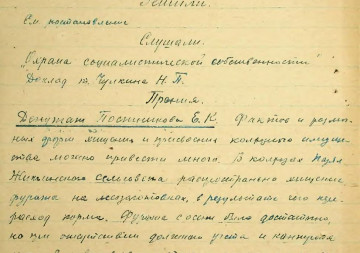 Решили.
См постановление
Слушали.
Охрана социалистической собственности
Доклад т. Чулкина Н. П.
Прения.
Депутат Постникова Е. К. Фактов и различ
ных форм хищения и присвоения колхозного имуще
ства можно привести много. В колхозах
сельсовета распространено хищение
фуража на лесозаготовках, в результате чего пере
расход корма. Фуража с осени было достаточно,
но при отсутствии должного учета и контроля